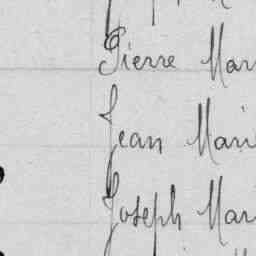 Pierre Mar
Jean Mari
Joseph Mar